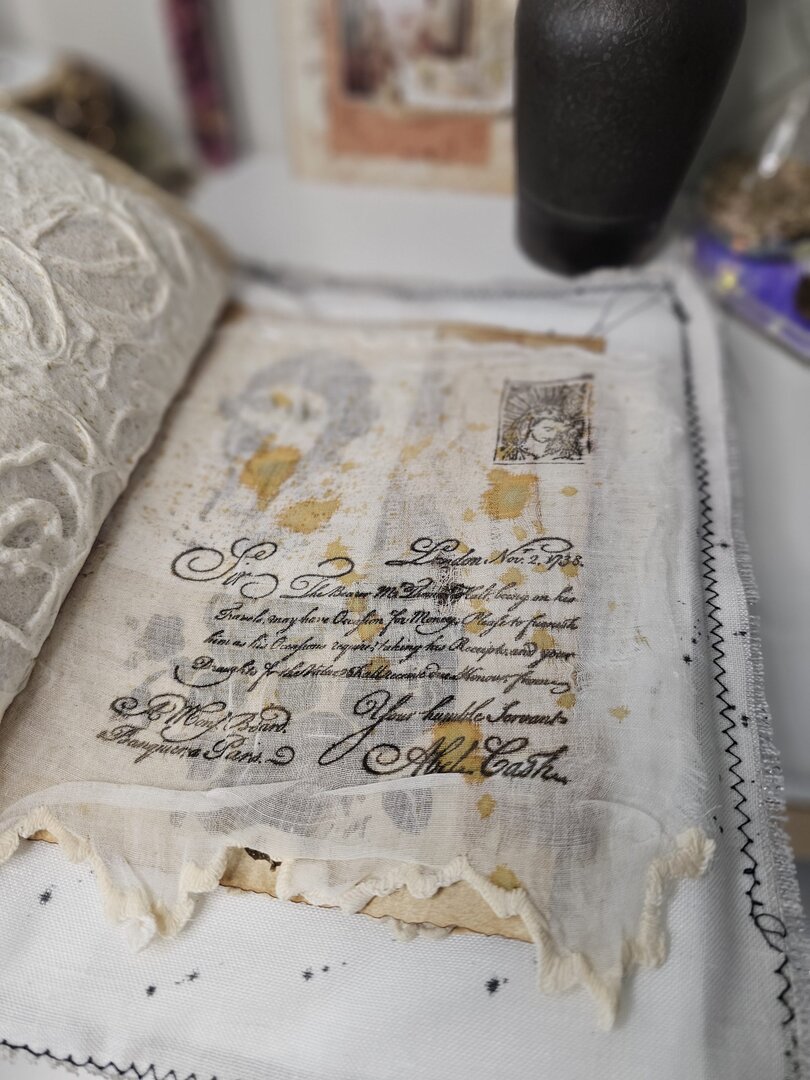 London Nov.r 2. 1738.
Sir
The Bearer Mr. Hall, being on his
Travels, may have Occasion for Money. Please to furnish
him as his Occasions require; taking his Receipts, and your
Draughts for the Value shall receive due Honour, from
Your humble Servant
A Mons.r Board.
Banquier a Paris.
Abel. Cash.